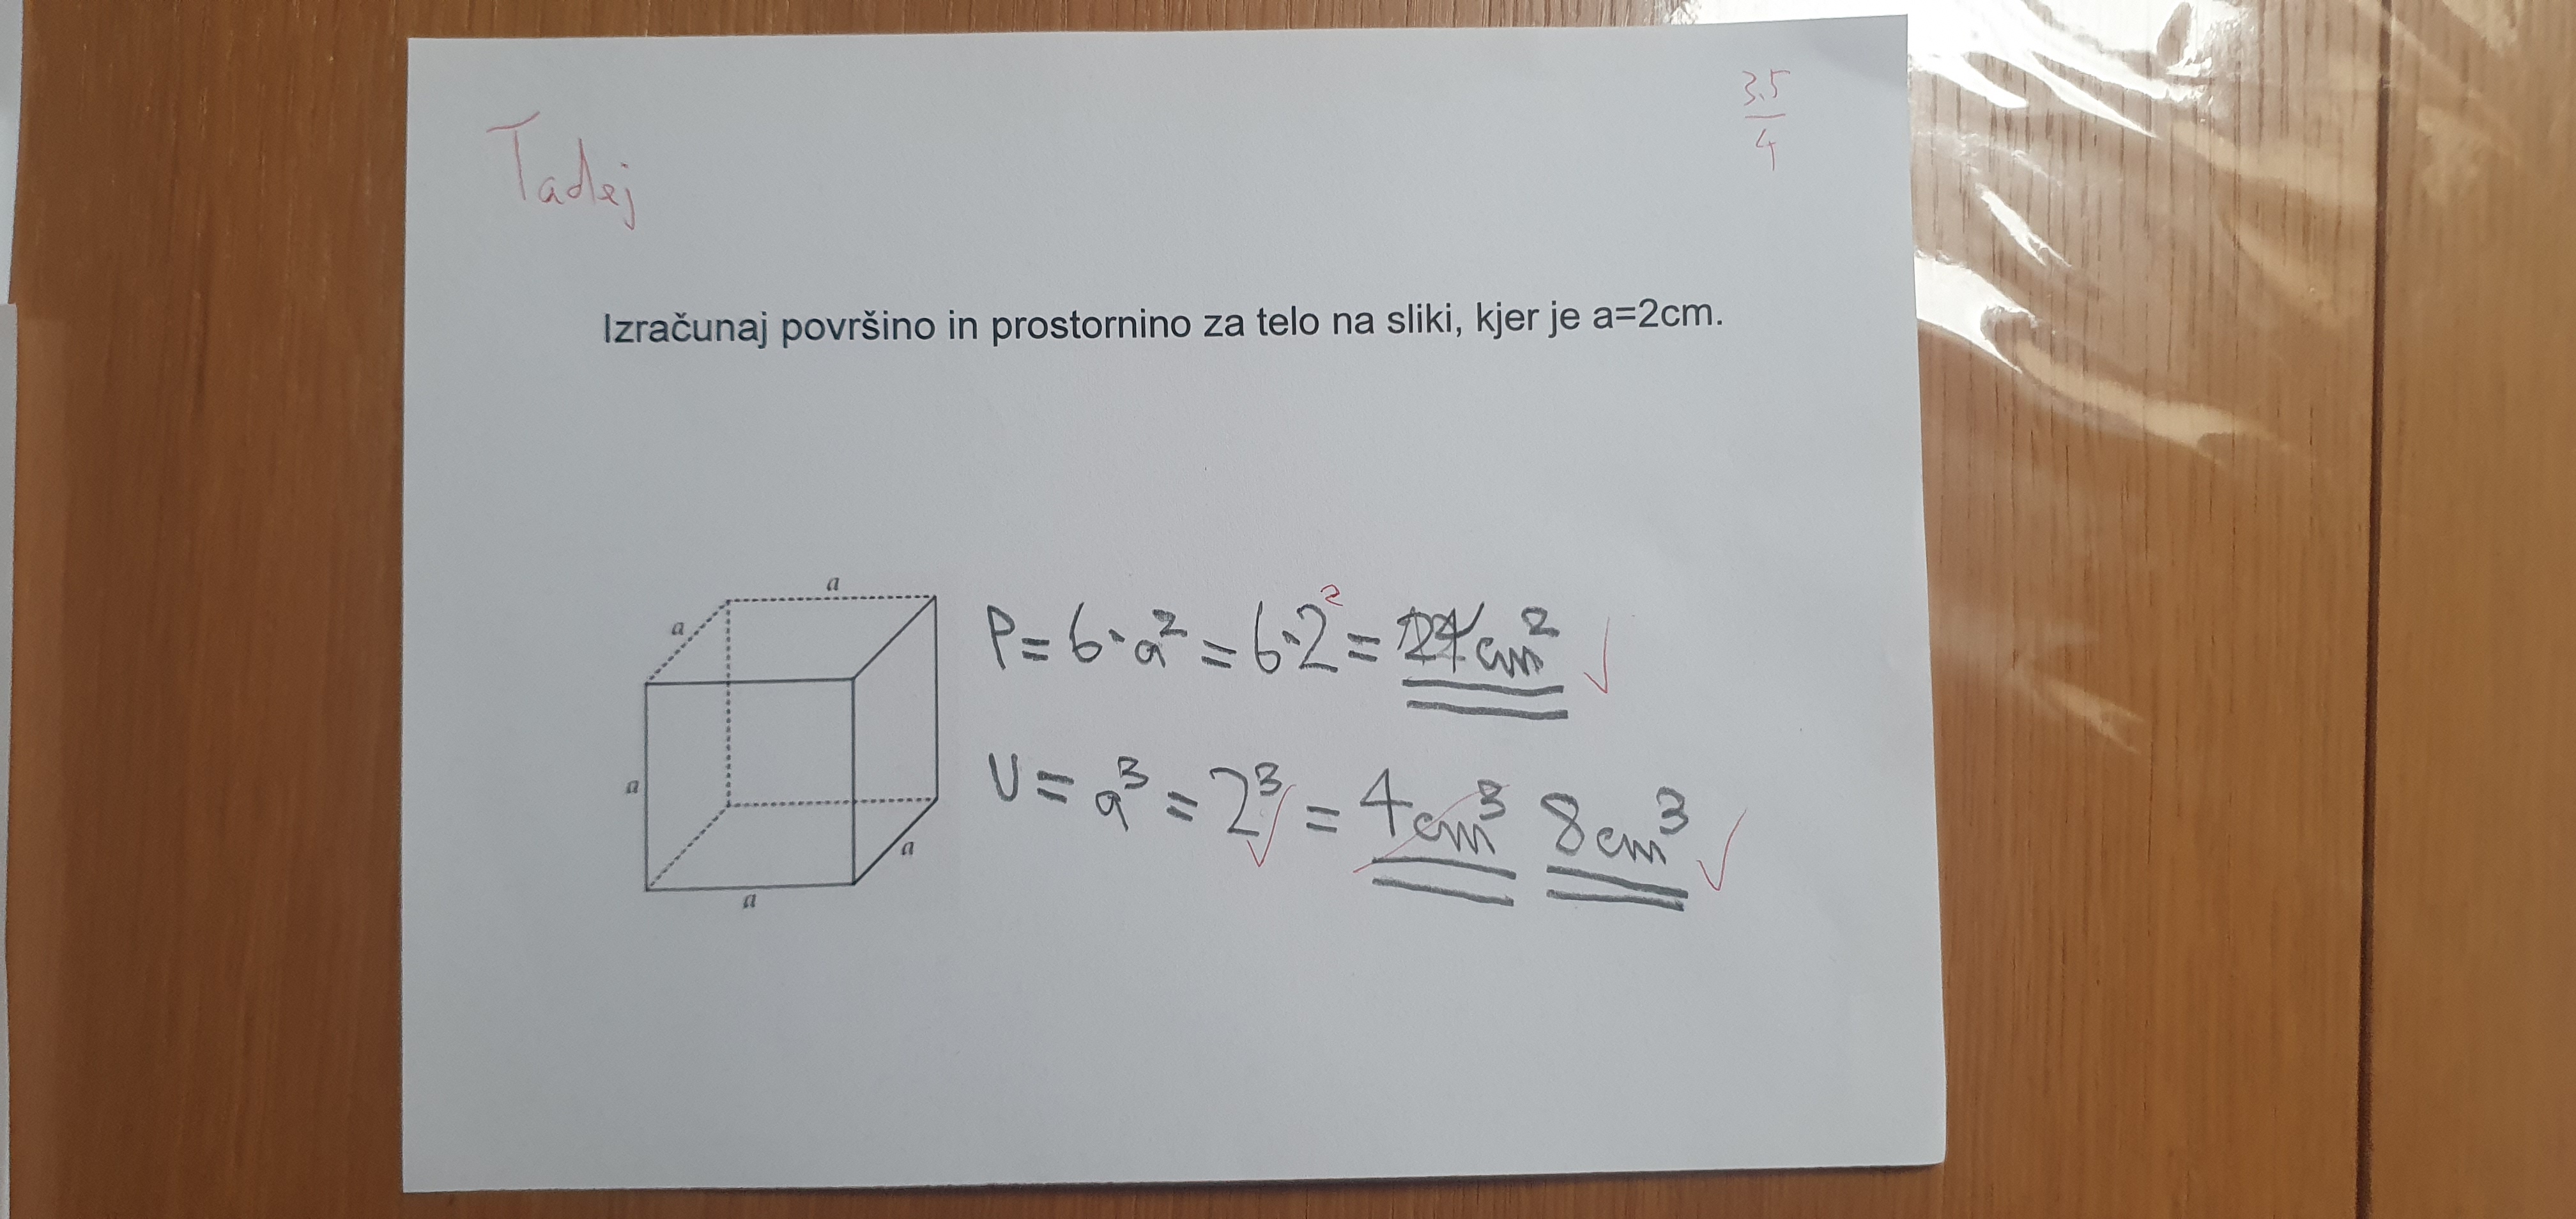 Tadej
3.5
4
Izračunaj površino in prostornino za telo na sliki, kjer je a=2cm.
a
a
a
a
a
P = 6·a² = 6·2² = 24cm²
V = a³ = 2³ = 4cm³ 8cm³